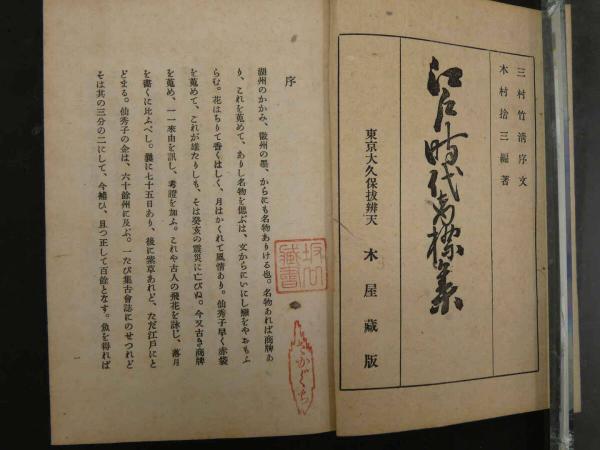 三村竹清序文
木村捨三編著
江戸時代商標集
東京大久保拔辨天　木屋藏版
序
湖州のかゞみ、徽州の墨、からにも名物ありける也。名物あれば商牌あ
り、これを蒐めて、ありし名物を偲ぶは、文からにいにし戀をやおもふ
らむ。花はちりて香くはしく、月はかくれて風情あり。仙秀子早く赤袋
を蒐めて、これが雄たりしも、そは癸亥の震災に亡びぬ。今又古き商牌
を蒐め、一一來由を訊し、考證を加ふ。これや古人の飛花を詠じ、落月
を書くに比ふべし。曩に七十五日あり、後に紫草あれど、ただ江戸にと
どまる。仙秀子の企は、六十餘州に及ぶ。一たび集古會誌にのせつれど
そは其の三分の二にして、今補ひ、且つ正して百餘となす。魚を得れば
一
藏書
かぐち